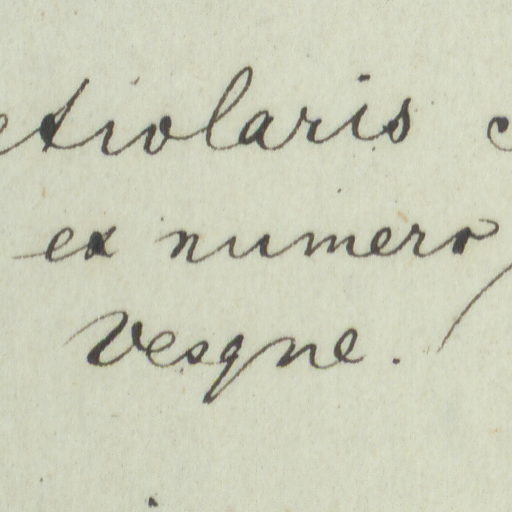 etiolaris c
ex numero
Vesqne.